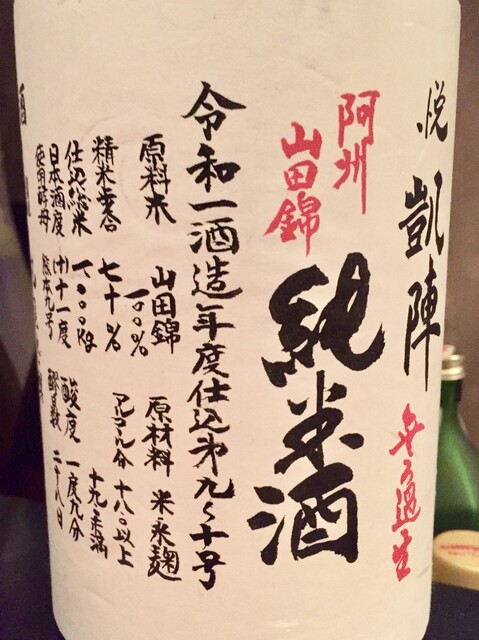 悦 凱陣 無ろ過生
阿州
山田錦
純米酒
令和一酒造年度仕込第九〜十号
原料米 山田錦 一〇〇%
原材料 米 米麹
精米歩合 七十%
アルコール分 十八〇以上
十九〇未満
仕込総米 一〇〇〇kg
酸度 一度九分
日本酒度 (+)十一度
醪日数 二十八日
使用酵母 熊本九号